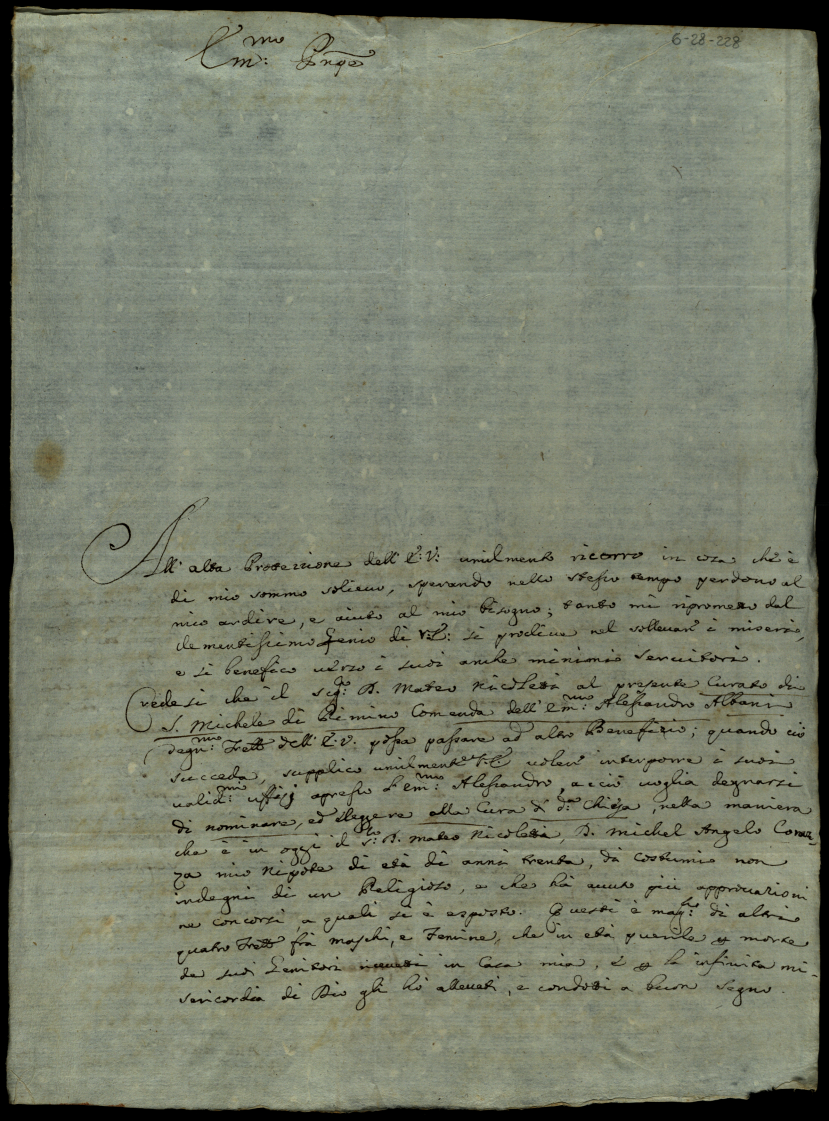 6-28-228
Em:mo Pnpe
All' alta Protezione dell' E:V: umilmente ricorro in cosa che è
di mio sommo solieuo, sperando nello stesso tempo perdono al
mio ardire, e aiuto al mio bisogno; tanto mi riprometto dal
clementissimo Genio di V:E: si procliue nel solleuar i miseri,
e si benefico uerso i suoi anche minimi seruitori.
Credesi che il Sig:r D. Mateo Nicoletti al presente Curato di
S. Michele di Rimino Comenda dell' Em:mo Alessandro Albani
degn:mo Frello dell' E.V. possa passare ad altro Benefizio; quando ciò
succeda, supplico umilmente V:E: voler interporre i suoi
valid:mi uffizj apresso l' Em:mo Alessandro, acciò voglia degnarsi
di nominare, ed eleggere alla Cura di d:a Chiesa, nella maniera
che è in oggi il S:r D. Mateo Nicoletti, D. Michel Angelo
mio Nipote di età di anni trenta, di costumi non
indegni di un Religioso, e che hà auuto più approuazioni
ne concorsi a quali si è esposto. Questi è mag:re di altri
quatro Frelli frà maschi, e Femine, che in età puerile p morte
de suoi Genitori riceuetti in Casa mia, e p la infinita mi-
sericordia di Dio gli hò alleuati, e condotti a buon segno.